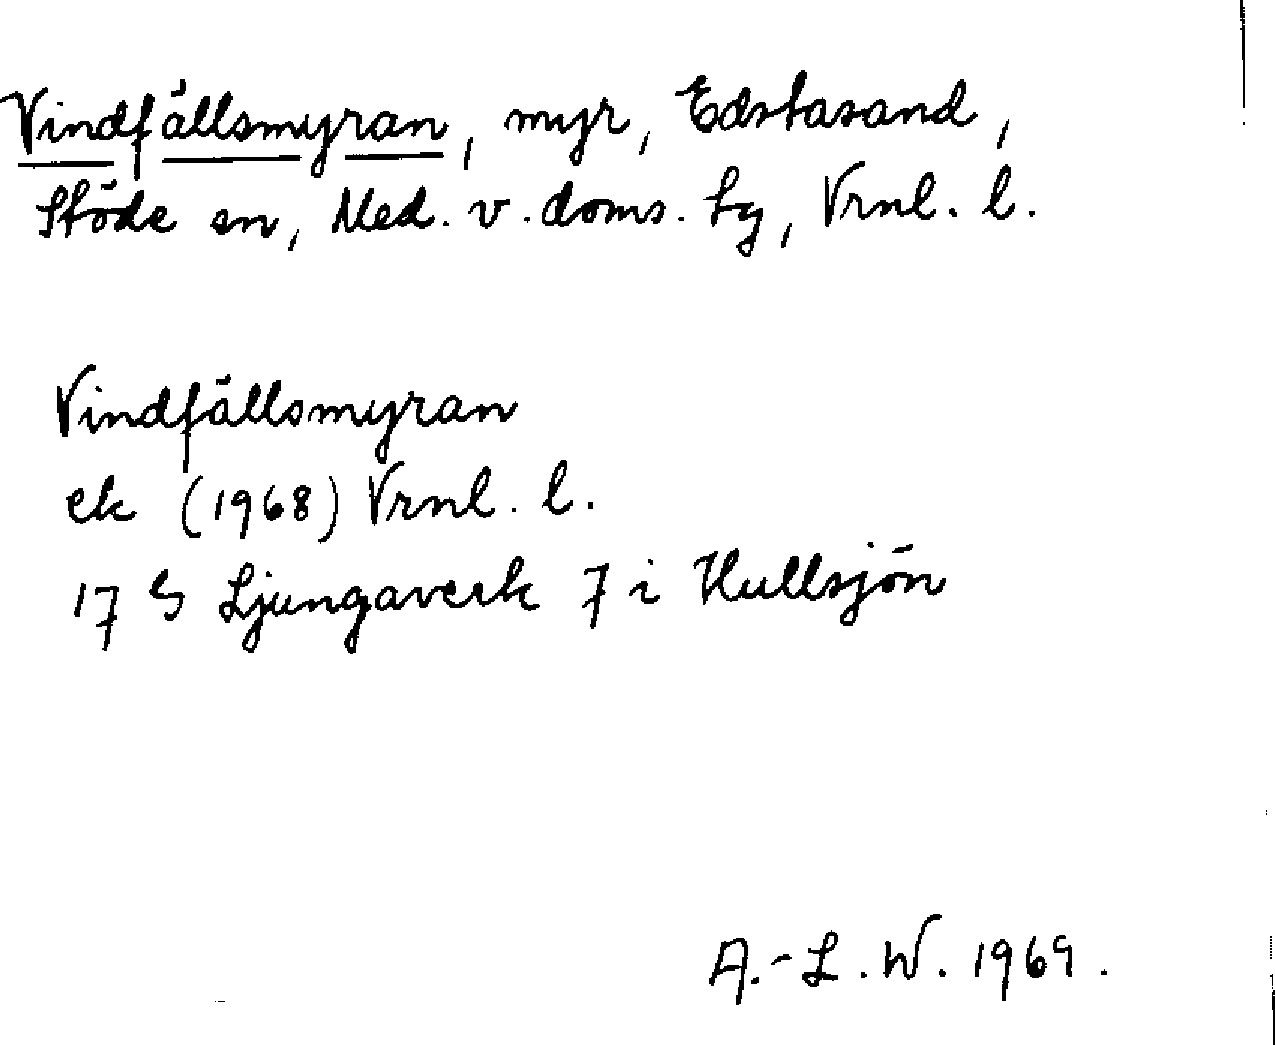 Vindfällsmyran, myr, Edstasand,
Stöde sn, Med. v. doms. tg, Vrnl. l.
Vindfällsmyran
ek (1968) Vrnl. l.
17 G Ljungaverk 7 i Hullsjön
A.-L.W. 1969.